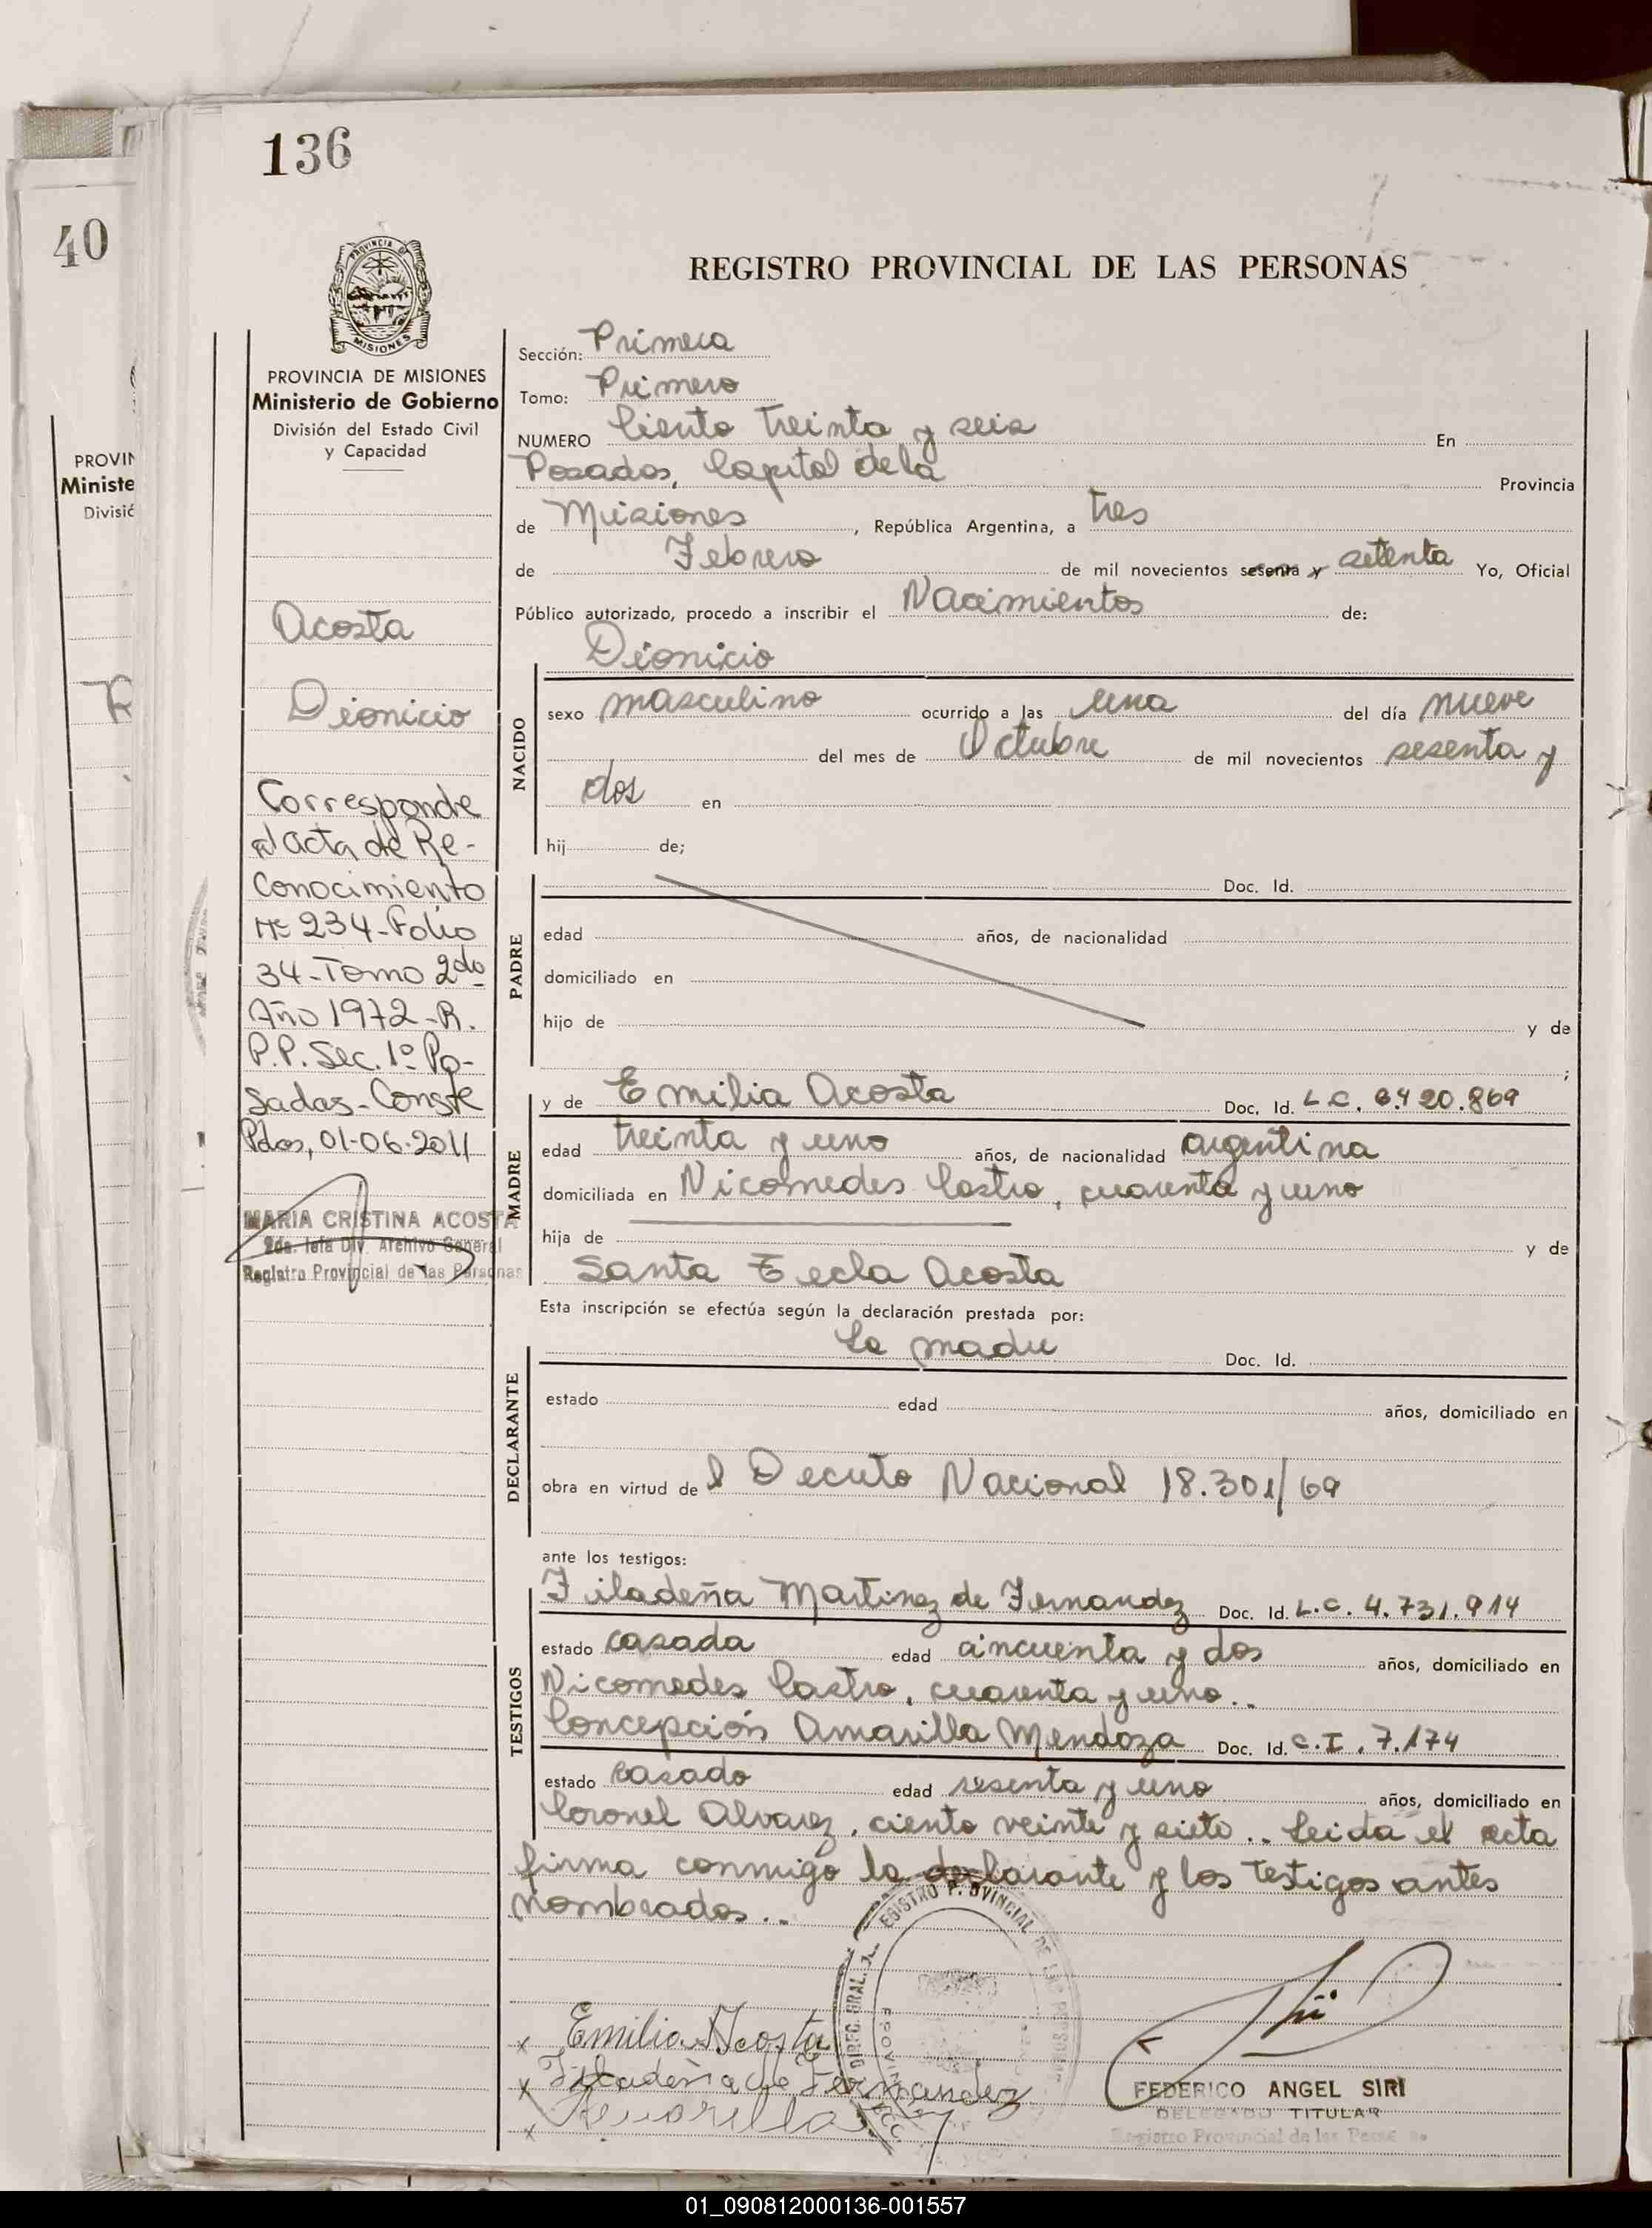 136
40
REGISTRO PROVINCIAL DE LAS PERSONAS
PROVINCIA DE
MISIONES
PROVINCIA DE MISIONES
Ministerio de Gobierno
División del Estado Civil
y Capacidad
PROVIN
Ministe
Divisió
Acosta
Dionicio
Corresponde
al acta de Re-
conocimiento
Nº 234-Folio
34-Tomo 2do
Año 1972-R.
P.P. Sec. 1º Po-
sadas-Conste
Pdas, 01-06-2011
MARIA CRISTINA ACOSTA
2da. Jefa Div. Archivo General
Registro Provincial de las Personas
Sección: Primera
Tomo: Primero
NUMERO Ciento treinta y seis En
Posadas, Capital de la Provincia
de Misiones, República Argentina, a tres
de Febrero de mil novecientos sesenta y setenta Yo, Oficial
Público autorizado, procedo a inscribir el Nacimientos de:
Dionicio
NACIDO
sexo masculino ocurrido a las una del día nueve
del mes de Octubre de mil novecientos sesenta y
dos en
hij de;
PADRE
Doc. Id.
edad años, de nacionalidad
domiciliado en
hijo de y de
;
MADRE
y de Emilia Acosta Doc. Id. L.C. 6.420.869
edad treinta y uno años, de nacionalidad argentina
domiciliada en Nicomedes Castro, cuarenta y uno
hija de y de
Santa Tecla Acosta
Esta inscripción se efectúa según la declaración prestada por:
DECLARANTE
La madre Doc. Id.
estado edad años, domiciliado en
obra en virtud de l Decreto Nacional 18.301/69
ante los testigos:
TESTIGOS
Filadeña Martinez de Fernandez Doc. Id. L.C. 4.731.914
estado casada edad cincuenta y dos años, domiciliado en
Nicomedes Castro, cuarenta y uno..
Concepción Amarilla Mendoza Doc. Id. C.I. 7.174
estado casado edad sesenta y uno años, domiciliado en
Coronel Alvarez, ciento veinte y siete.. Leida el acta
firma conmigo la declarante y los testigos antes
nombrados..
x Emilia Acosta
x Filadeña de Fernandez
x
FEDERICO ANGEL SIRI
DELEGADO TITULAR
Registro Provincial de las Personas
01_090812000136-001557